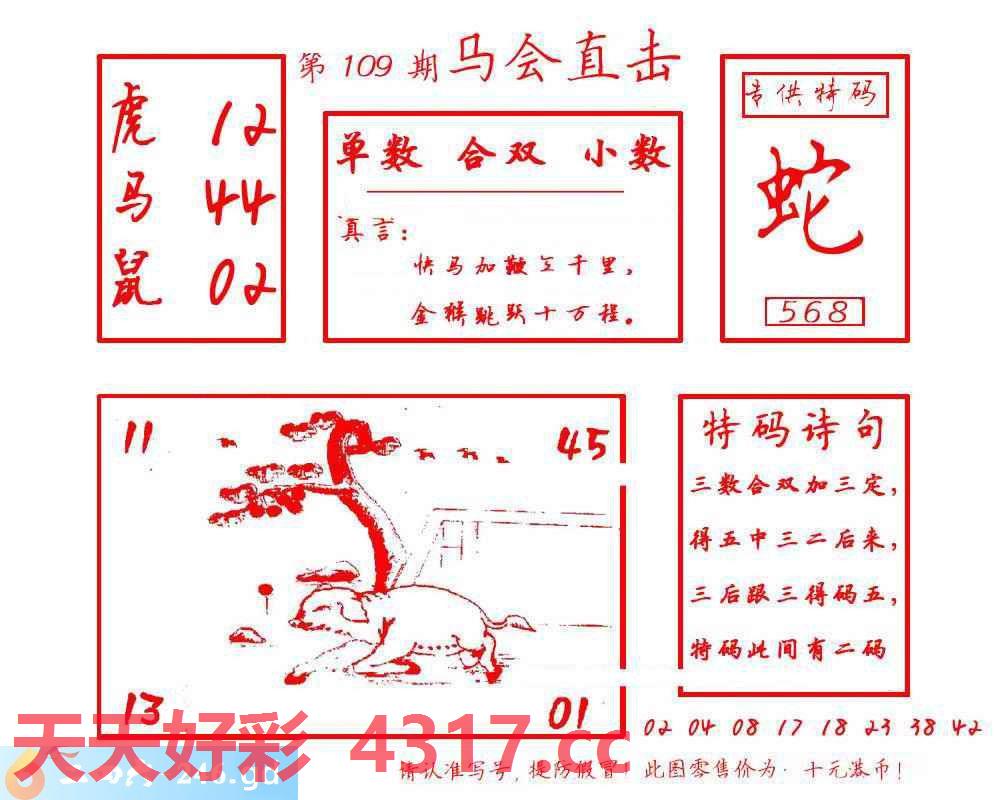 第 109 期 马会直击
虎 12
马 44
鼠 02
单数 合双 小数
真言：
快马加鞭三千里，
金猴跳跃十万程。
专供特码
蛇
568
11
45
13
01
特码诗句
三数合双加三定，
得五中三二后来，
三后跟三得码五，
特码此间有二码
02 04 08 17 18 23 38 42
天天好彩 4317.cc
246.gd
请认准写号，提防假冒！此图零售价为·十元港币！